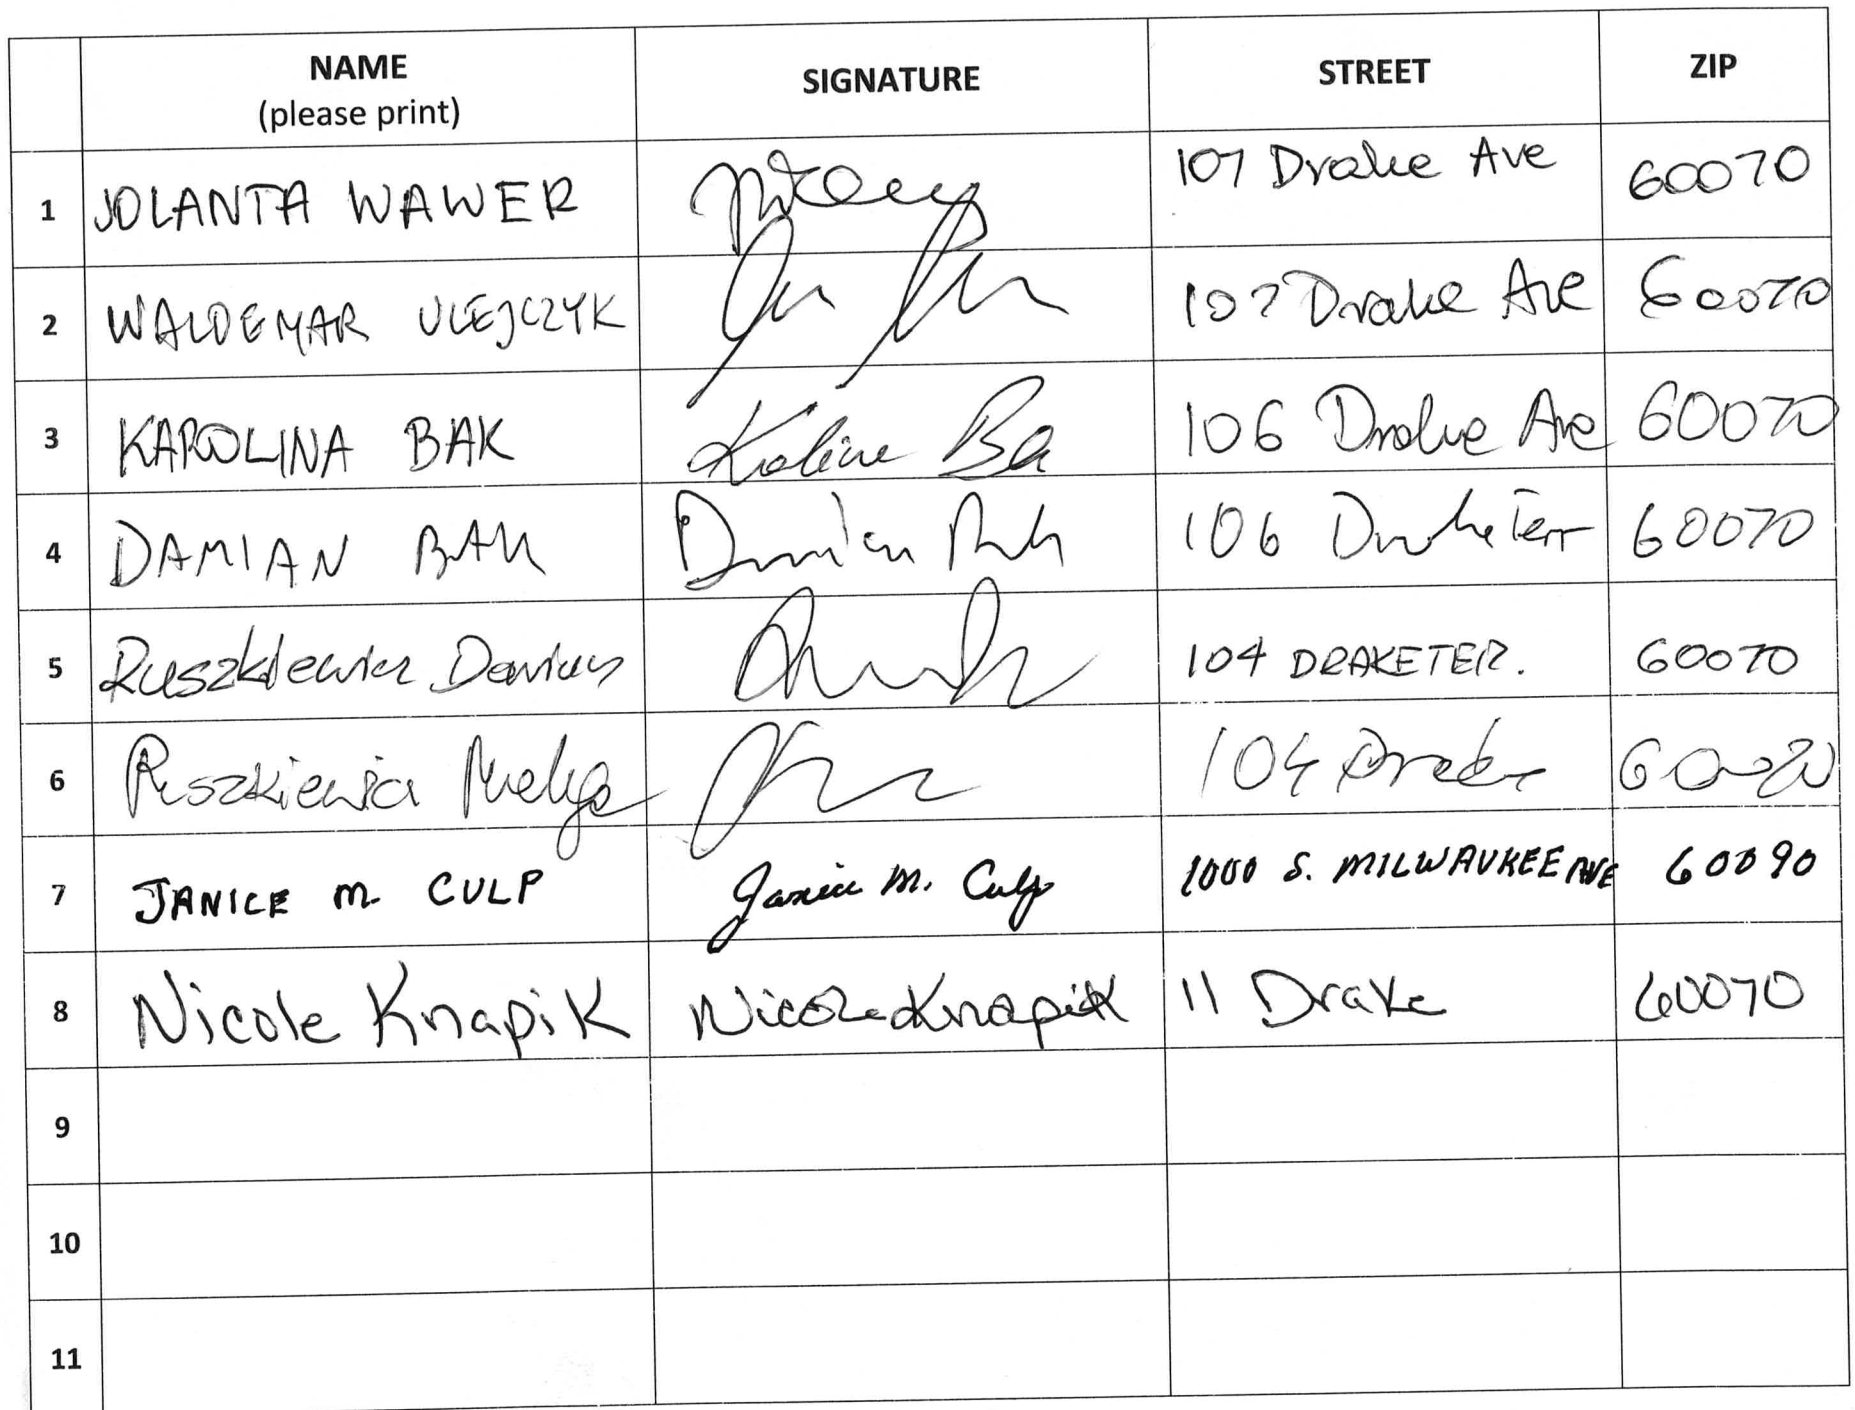 NAME SIGNATURE STREET ZIP
(please print)
1 JOLANTA WAWER 107 Drake Ave 60070
2 WALDEMAR ULEJCZYK 107 Drake Ave 60070
3 KAROLINA BAK Karolina Ba 106 Drake Ave 60070
4 DAMIAN BAK Damian Bak 106 Drake Terr 60070
5 Ruszkiewicz Dariusz 104 DRAKE TER. 60070
6 Ruszkiewicz 104 Drake 60070
7 JANICE M. CULP Janice M. Culp 1000 S. MILWAUKEE AVE 60090
8 Nicole Knapik Nicole Knapik 11 Drake 60070
9
10
11